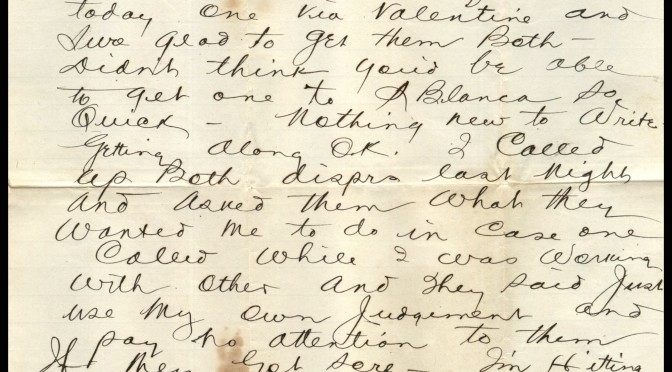 today one via Valentine and
Sure glad to get them Both -
Didnt think you'd be able
to get one to S Blanca So
Quick - Nothing new to Write
Getting along OK. I Called
up Both disprs last Night
And Asked them What they
Wanted Me to do in Case one
Called While I was Working
With Other And They said Just
use My own Judgement and
pay no attention to them
If They Got sore - I'm Hitting